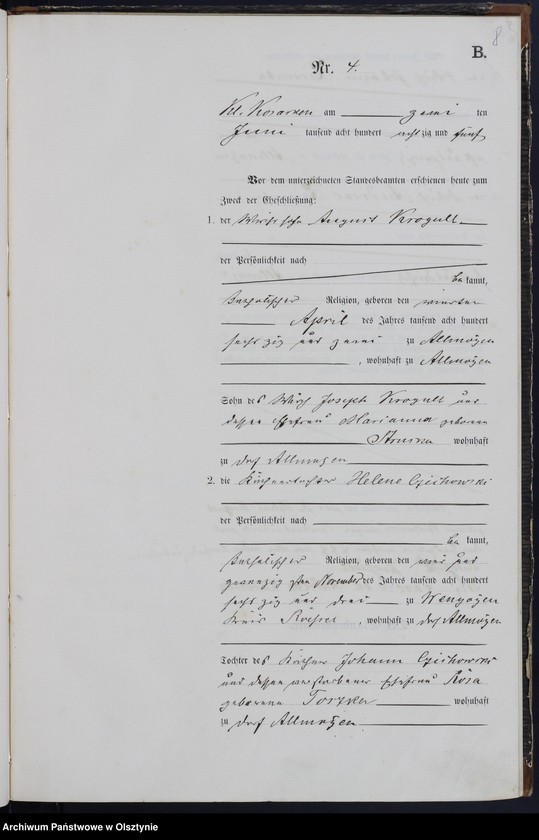 8
B.
Nr. 4.
Kl. Kosarken am zwei ten
Juni tausend acht hundert achtzig und fünf
Vor dem unterzeichneten Standesbeamten erschienen heute zum
Zweck der Eheschließung:
1. der Wirthssohn August Krogull
der Persönlichkeit nach
be kannt,
katholischer Religion, geboren den vierten
April des Jahres tausend acht hundert
sechszig und zwei zu Allmoyen
, wohnhaft zu Allmoyen
Sohn des Wirth Joseph Krogull und
dessen Ehefrau Marianna geborene
wohnhaft
zu Dorf Allmoyen
2. die Käthnertochter Helene
der Persönlichkeit nach
be kannt,
katholischer Religion, geboren den vier und
zwanzigsten November des Jahres tausend acht hundert
sechszig und drei zu Wengoyen
Kreis Rössel, wohnhaft zu Dorf Allmoyen
Tochter des Käthner Johann
und dessen verstorbener Ehefrau Rosa
geborene wohnhaft
zu Dorf Allmoyen
Archiwum Państwowe w Olsztynie